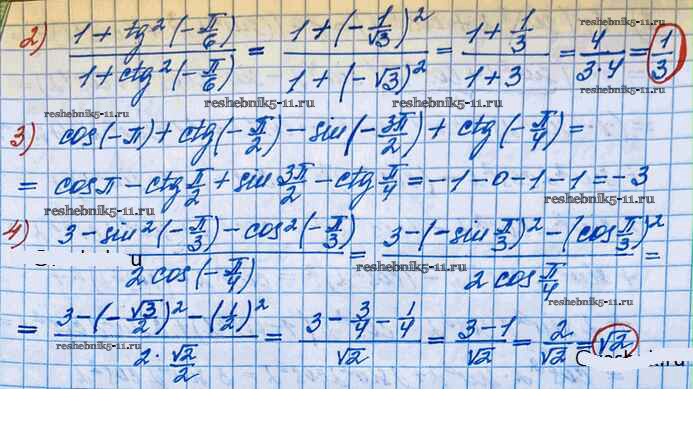 2) (1 + tg²(-π/6)) / (1 + ctg²(-π/6)) = (1 + (-1/√3)²) / (1 + (-√3)²) = (1 + 1/3) / (1 + 3) = 4/(3·4) = 1/3
reshebnik5-11.ru
reshebnik5-11.ru
reshebnik5-11.ru
reshebnik5-11.ru
3) cos(-π) + ctg(-π/2) - sin(-3π/2) + ctg(-π/4) =
reshebnik5-11.ru
= cosπ - ctg π/2 + sin 3π/2 - ctg π/4 = -1 - 0 - 1 - 1 = -3
reshebnik5-11.ru
reshebnik5-11.ru
4) (3 - sin²(-π/3) - cos²(-π/3)) / (2cos(-π/4)) = (3 - (-sin π/3)² - (cos π/3)²) / (2cos π/4) =
reshebnik5-11.ru
reshebnik5-11.ru
= (3 - (-√3/2)² - (1/2)²) / (2 · √2/2) = (3 - 3/4 - 1/4) / √2 = (3 - 1)/√2 = 2/√2 = √2
reshebnik5-11.ru
reshebnik5-11.ru